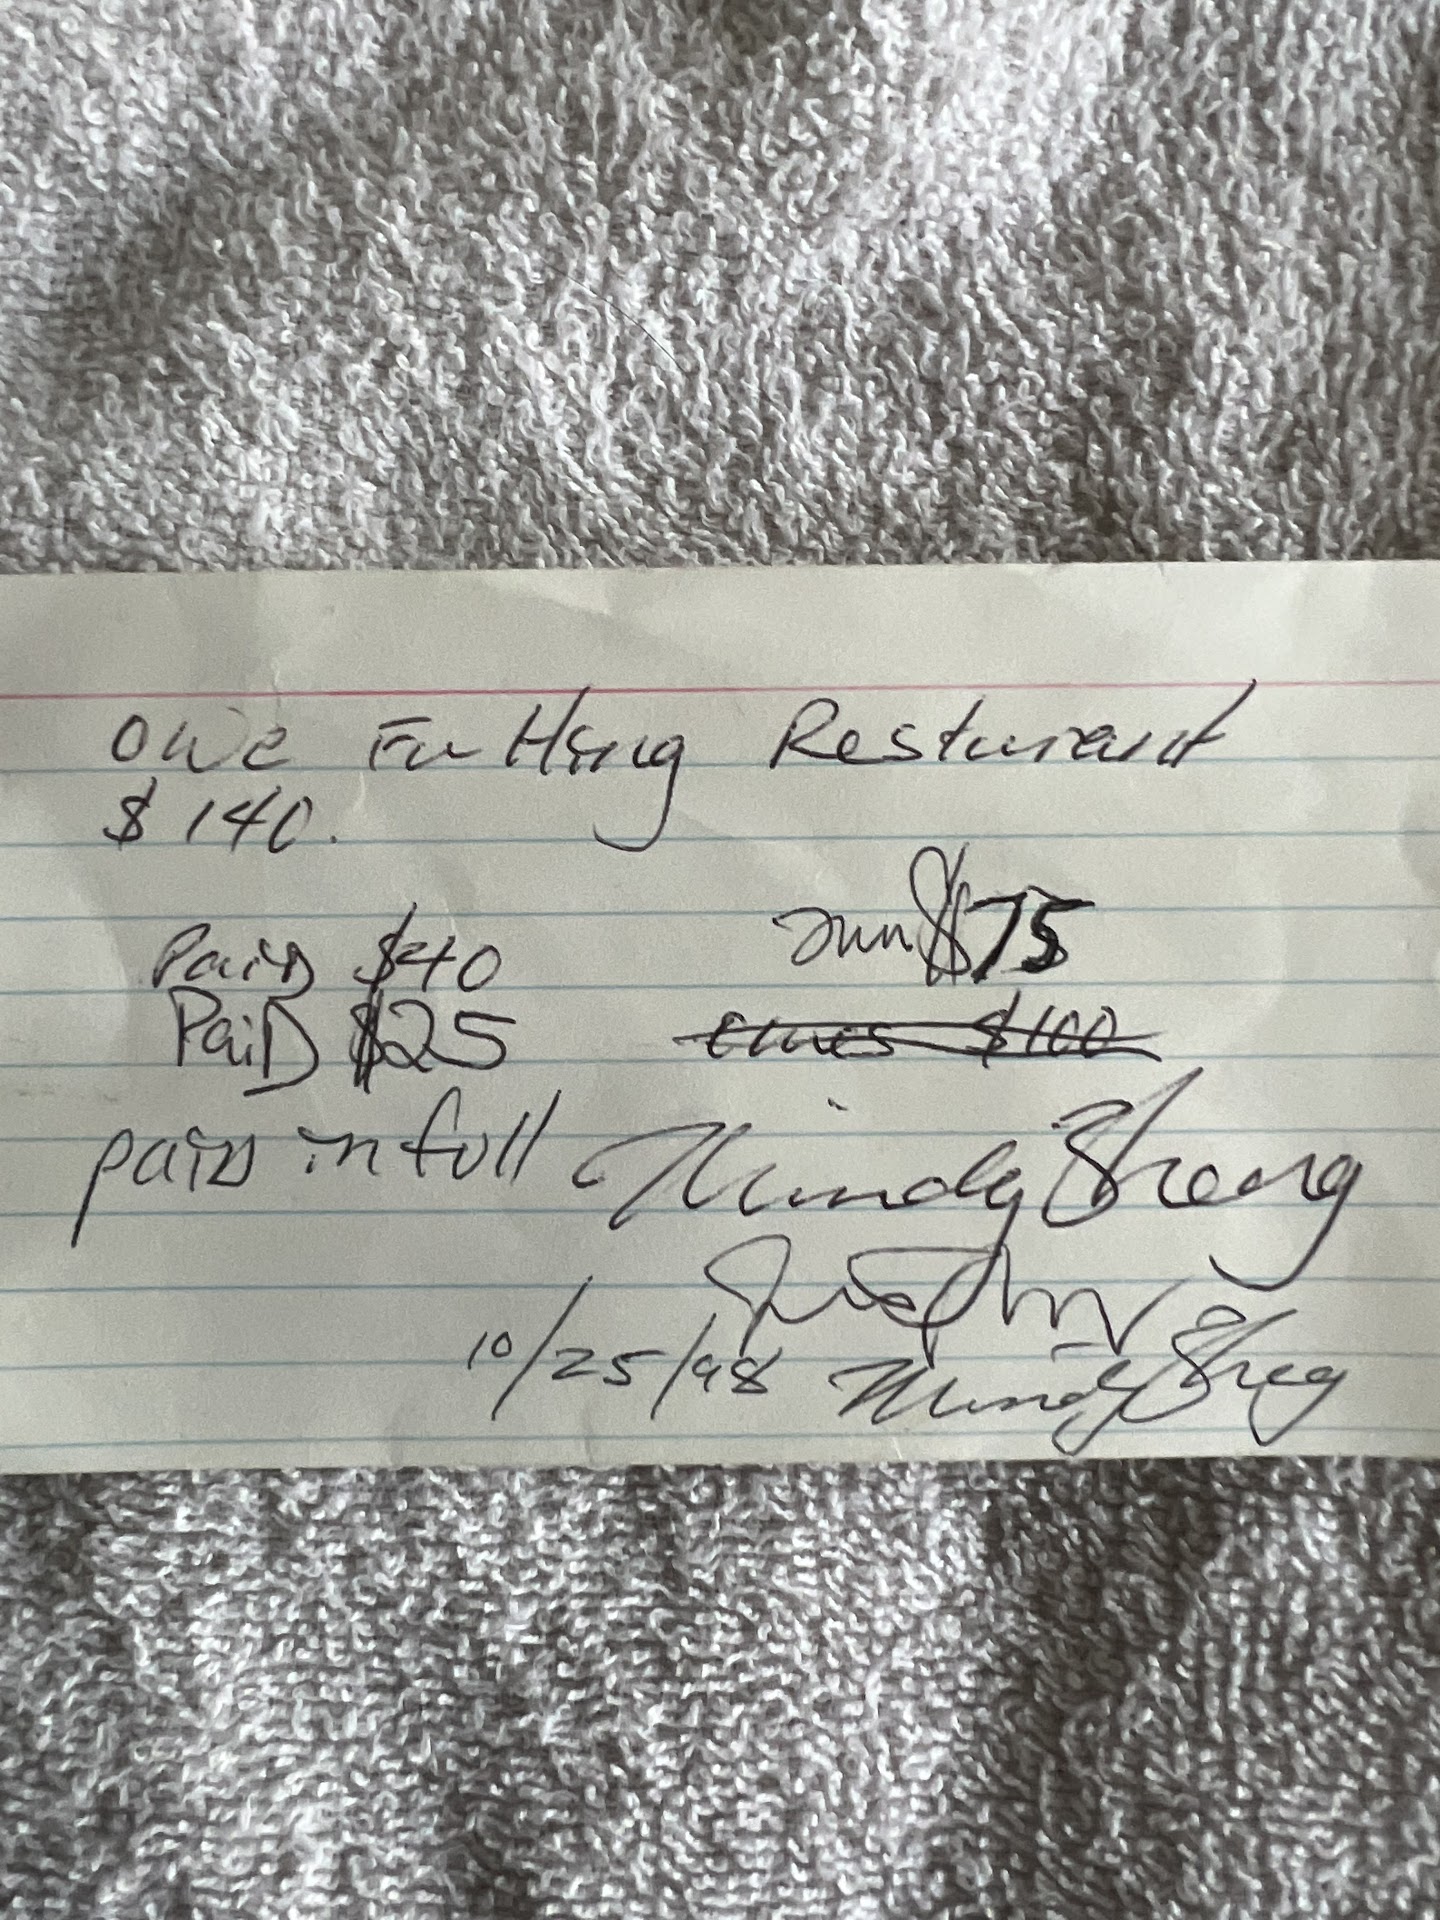 owe Fu Hing Resturant
$140.
Paid $40
$75
Paid $25
owes $100
paid in full Mindy Sheng
10/25/98 Mindy Sheng